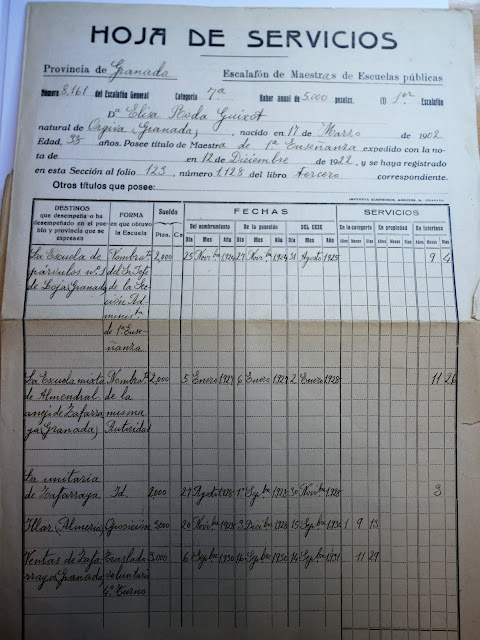 HOJA DE SERVICIOS
Provincia de Granada Escalafón de Maestras de Escuelas públicas
Número 8.161 del Escalafón General Categoría 7ª Haber anual de 5.000 pesetas. (1) 1er Escalafón
D.ª Elisa Guixot
natural de Orgiva (Granada), nacido en 17 de Marzo de 1902
Edad, 38 años. Posee título de Maestra de 1ª Enseñanza expedido con la no-
ta de en 12 de Diciembre de 1922, y se haya registrado
en esta Sección al folio 123, número 1.128 del libro Tercero correspondiente.
Otros títulos que posee:
DESTINOS FORMA Sueldo FECHAS SERVICIOS
que desempeña o ha desempeñado en el pueblo y provincia que se expresan
en que obtuvo la Escuela
Ptas. Cs
Del nombramiento De la posesión DEL CESE En la categoría En propiedad En interinos
Día Mes Año Día Mes Año Día Mes Año Años Meses Días Años Meses Días Años Meses Días
La Escuela de Nombrat. 2,000 25 Novbre 1924 27 Novbre 1924 31 Agosto 1925 9 4
párvulos nº 1 del Sr Jefe
de Loja Granada de la Sec-
ción Ad-
minist.
de 1ª Ense-
ñanza
La Escuela mixta Nombrat. 2,000 5 Enero 1927 6 Enero 1927 2 Enero 1928 11 26
de Almendral de la
anejo de Zafarra misma
ya (Granada) Autoridad
La unitaria
de Zafarraya Id. 2,000 27 Agosto 1928 1º Sepbre 1928 30 Novbre 1928 3
Illar (Almería) Oposición 3,000 20 Novbre 1928 3 Dicibre 1928 15 Sepbre 1930 1 9 13
Ventas de Zafa Traslado 3,000 6 Sepbre 1930 16 Sepbre 1930 14 Sepbre 1931 11 29
rraya Granada voluntario
4º Turno